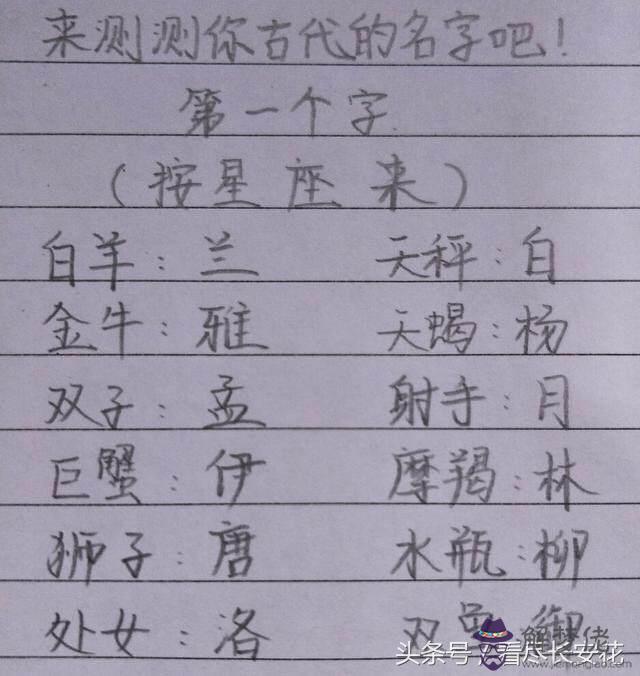 来测测你古代的名字吧！
第一个字
（按星座来）
白羊：兰 天秤：白
金牛：雅 天蝎：杨
双子：孟 射手：月
巨蟹：伊 摩羯：林
狮子：唐 水瓶：柳
处女：洛 双鱼：御
头条号 看尽长安花
解梦佬
www.jiemenglao.com